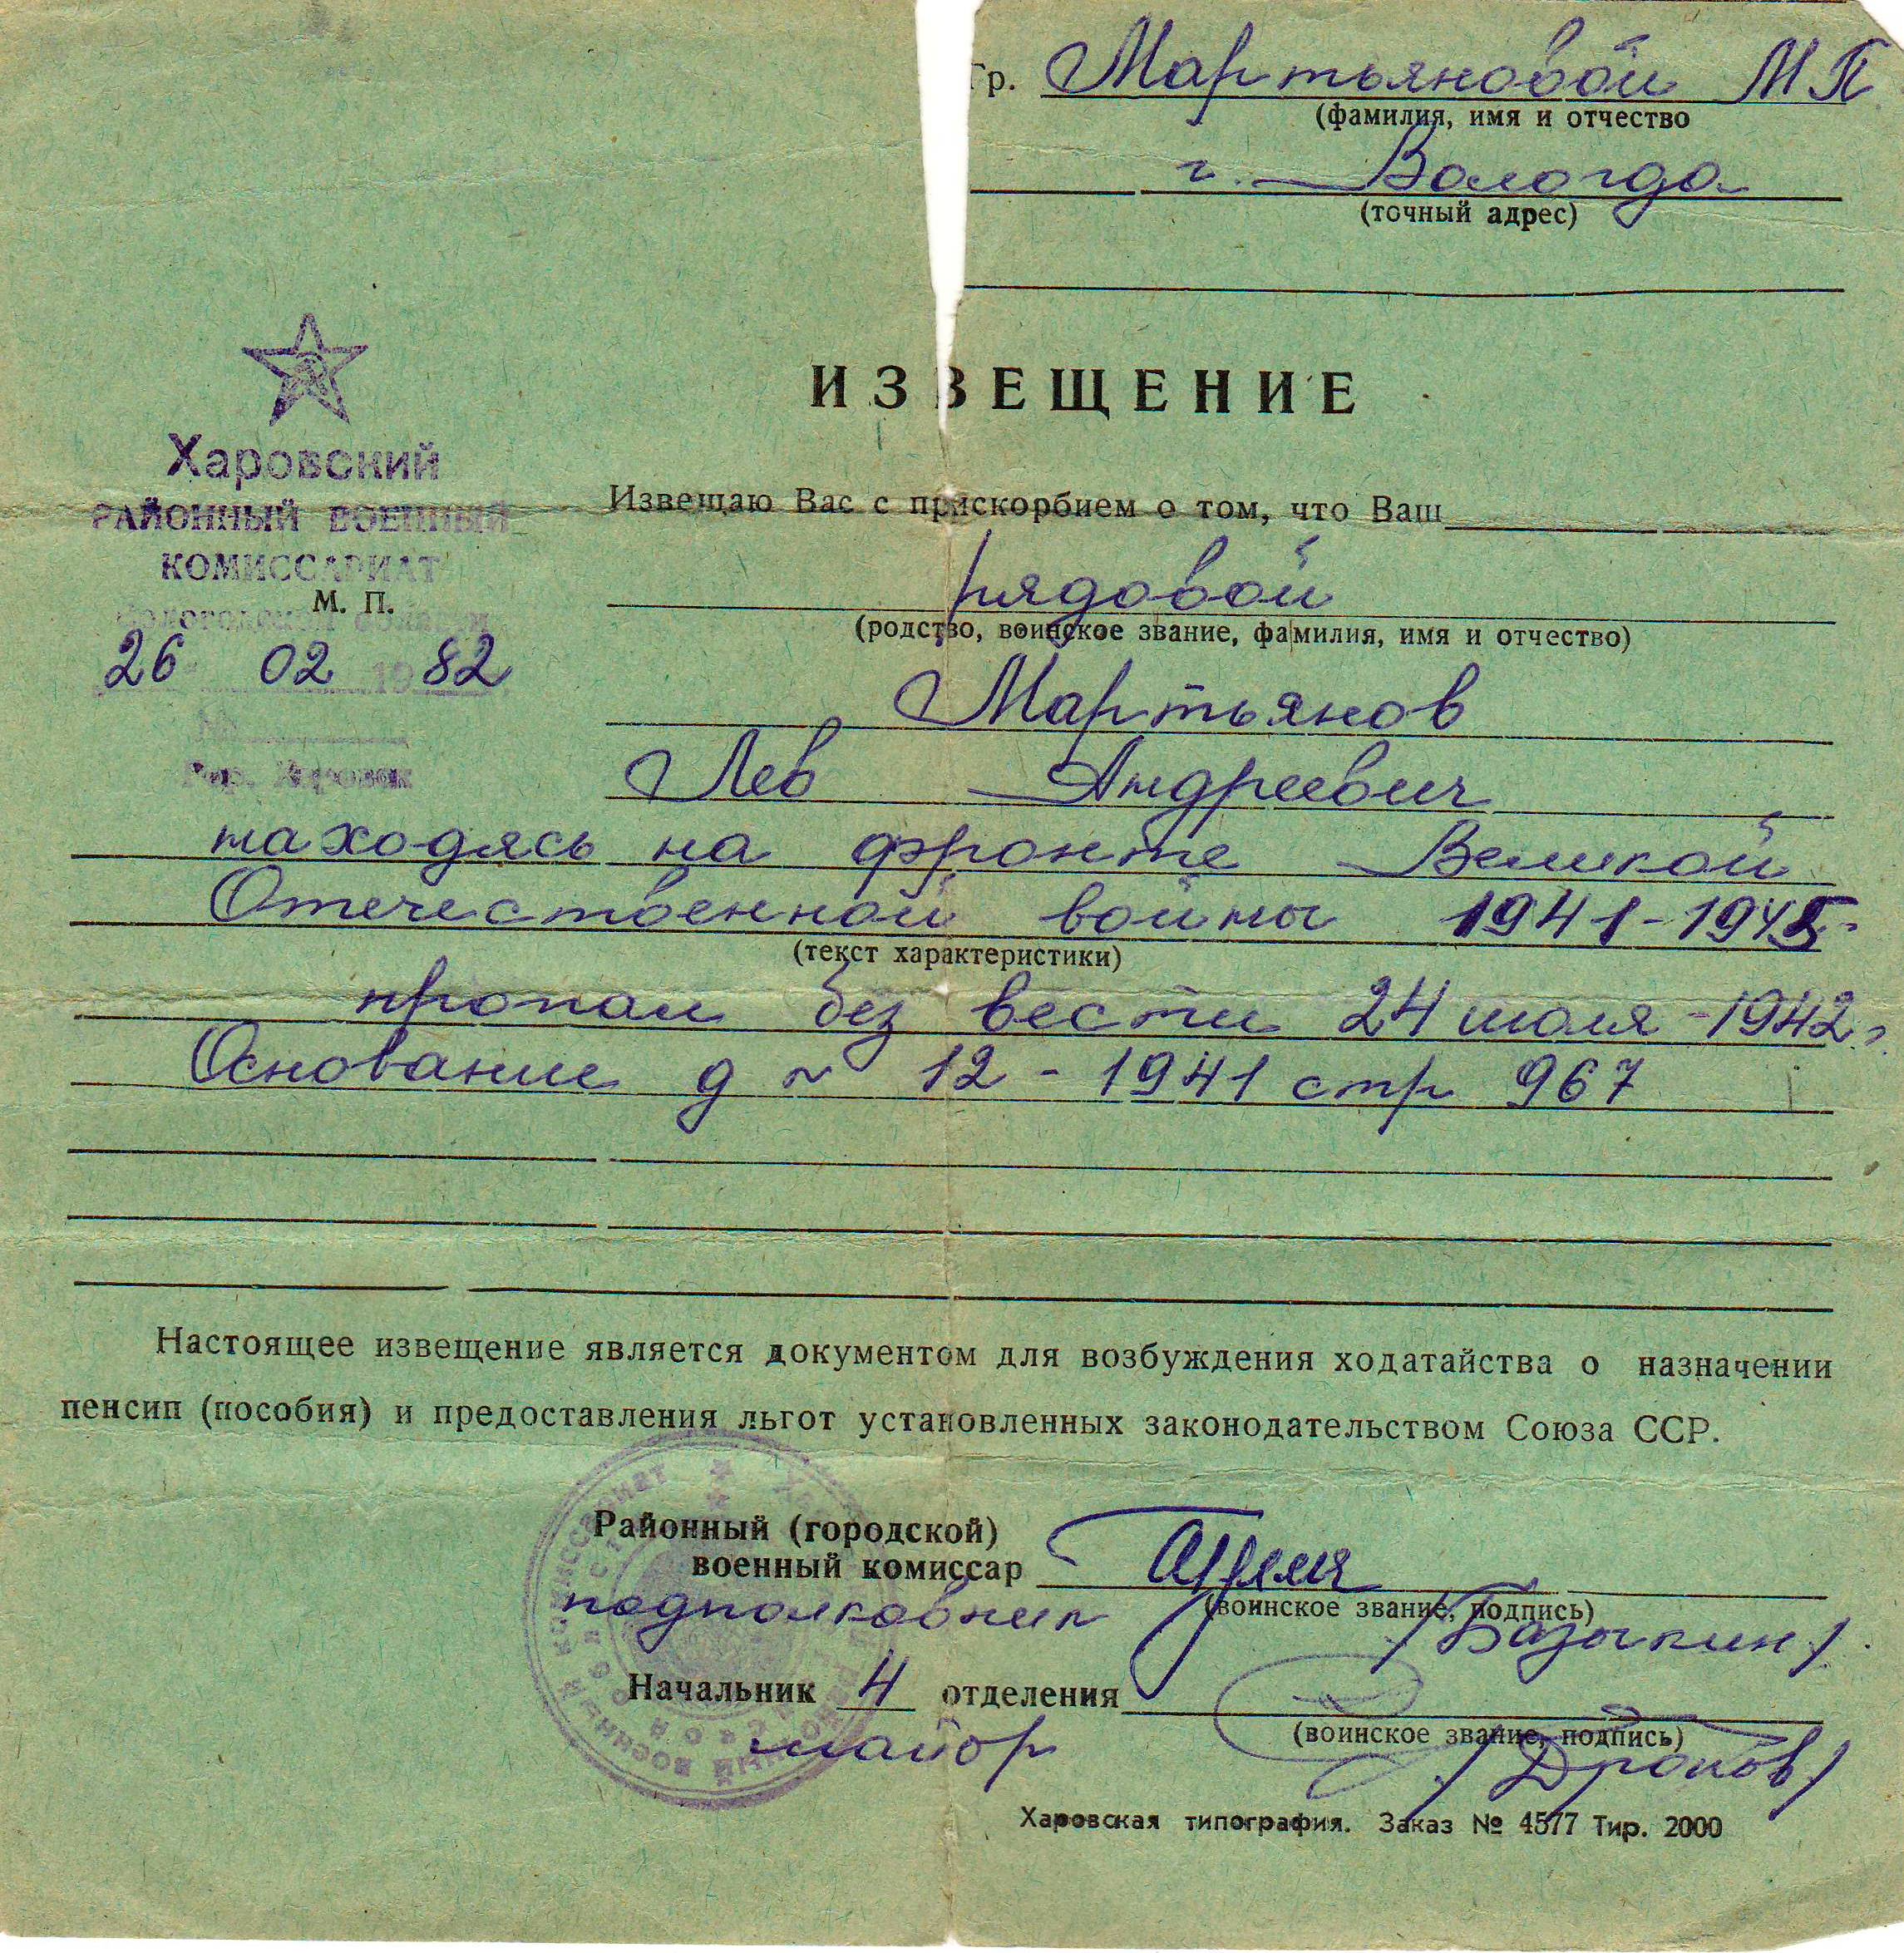 Гр. Мартьяновой М П
(фамилия, имя и отчество
г. Вологда
(точный адрес)
ИЗВЕЩЕНИЕ
Харовский
РАЙОННЫЙ ВОЕННЫЙ
КОМИССАРИАТ
М. П.
Вологодской области
26 02 1982
№
Гор. Харовск
Извещаю Вас с прискорбием о том, что Ваш
рядовой
(родство, воинское звание, фамилия, имя и отчество)
Мартьянов
Лев Андреевич
находясь на фронте Великой
Отечественной войны 1941-1945г.
(текст характеристики)
пропал без вести 24 июля -1942г.
Основание д ~ 12 - 1941 стр 967
Настоящее извещение является документом для возбуждения ходатайства о назначении
пенсип (пособия) и предоставления льгот установленных законодательством Союза ССР.
Районный (городской)
военный комиссар
(воинское звание, подпись)
подполковник
Начальник 4 отделения
(воинское звание, подпись)
майор /Дронов/
Харовская типография. Заказ № 4577 Тир. 2000